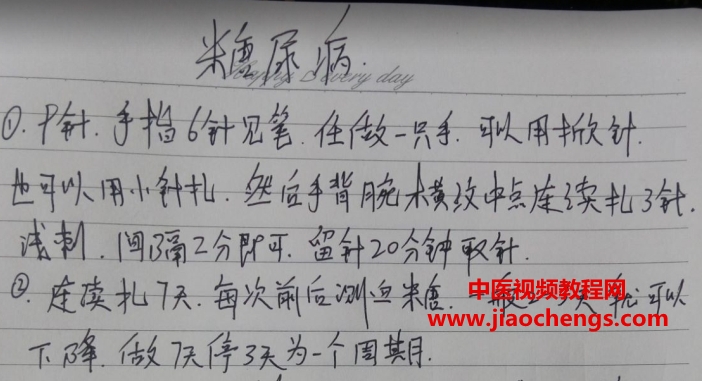 糖尿病.
Happy Every day
①. P针. 手指6针见笔. 任做一只手. 可以用揿针.
也可以用小针扎. 然后手背腕木横纹中点连续扎3针.
浅刺. 间隔2分即可. 留针20分钟取针.
②. 连续扎7天. 每次前后测血糖. 一般 天就可以
中医视频教程网
www.jiaochengs.com
下降. 做7天停3天为一个周期.